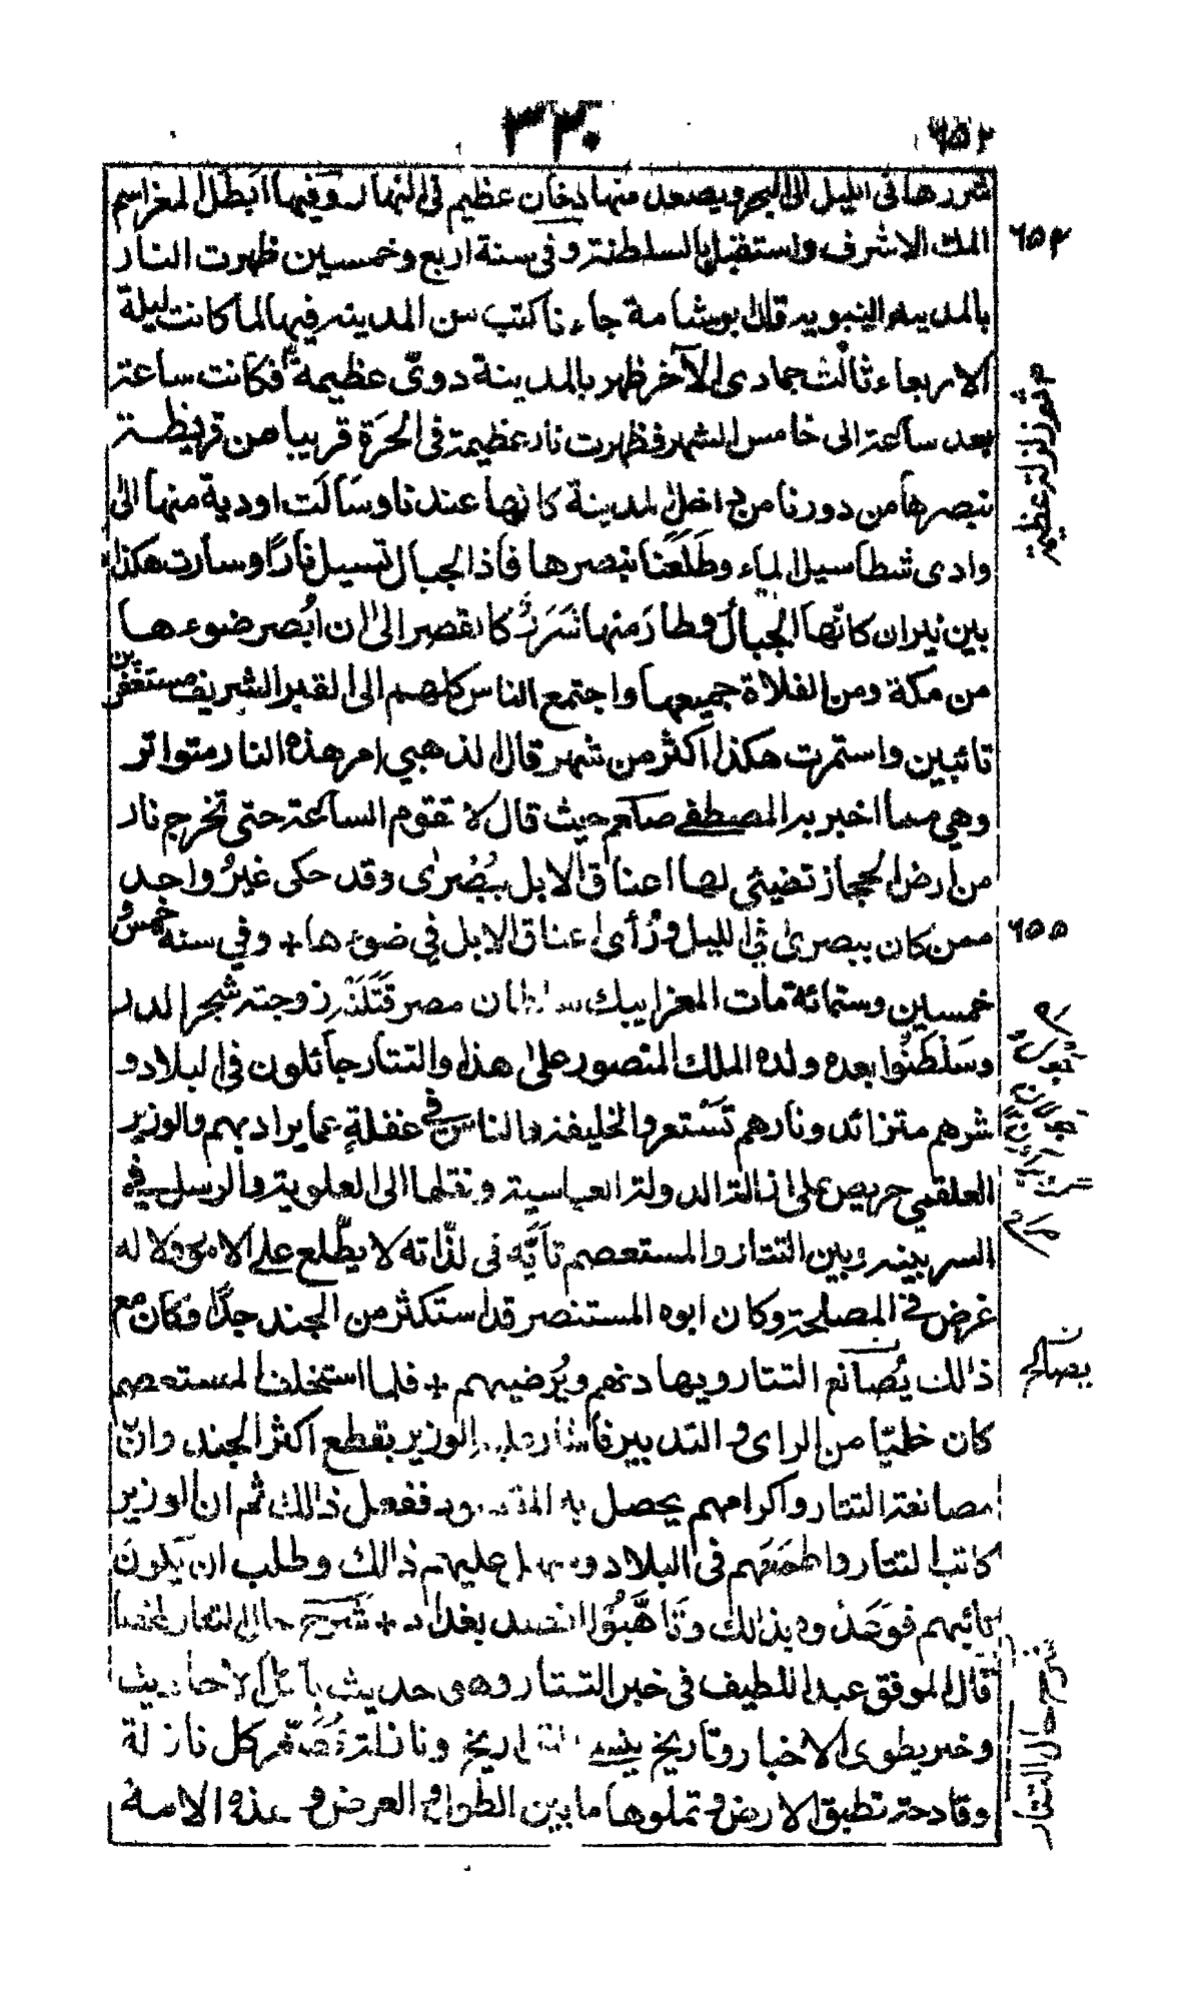 ٣٣٠
٦٥٢
شررها فى الليل الى البحر ويصعد منها دخان عظيم فى النهار وفيها ابطل المعز اسم
الملك الاشرف واستقبل بالسلطنة وفى سنة اربع وخمسين ظهرت النار
بالمدينة النبوية قال ابوشامة جاءنا كتب من المدينة فيها لما كانت ليلة
الاربعاء ثالث جمادى الآخر ظهر بالمدينة دوىّ عظيمة فكانت ساعة
بعد ساعة الى خامس الشهر فظهرت نار عظيمة فى الحرّة قريبا من قريظة
نبصرها من دورنا من داخل المدينة كانها عندنا وسَالَت اودية منها الى
وادى شطا سيل الماء وطَلَعْنا نبصرها فاذا الجبال تسيل نارًا وسارت هكذا
بين نيران كانّها الجبال وطار منها شَرَرٌ كالقصر الى ان ابُصر ضوءها
من مكة ومن الفلاة جميعها واجتمع الناس كلهم الى القبر الشريف مستغفرين
تائبين واستمرت هكذا اكثر من شهر قال الذهبي امر هذه النار متواتر
وهي مما اخبر به المصطفى صلعم حيث قال لا تقوم الساعة حتى تخرج نار
من ارض الحجاز تضيئي لها اعناق الابل ببُصْرىٰ وقد حكى غيرُ واحد
ممن كان ببصرىٰ فى الليل ورُأى اعناق الابل فى ضوءها + وفي سنة خمس و
خمسين وستمائة مات المعز ايبك سلطان مصر قَتَلَتْه زوجته شجر الدر
وسَلْطَنُوا بعده ولده الملك المنصور على هذا والتتار جائلون فى البلاد و
شرهم متزائد ونارهم تَسْتعر والخليفة والناس فى غفلةٍ عما يراد بهم والوزير
العلقمي حريص على ازالة الدولة العباسية ونقلها الى العلوية والرسل فى
السر بينه وبين التتار والمستعصم تآيّه فى لذّاته لا يطّلع على الامور ولا له
غرض فى المصلحة وكان ابوه المستنصر قد استكثر من الجند جدًّا وكان مع
ذالك يُصَانع التتار ويهادنهم ويُرْضيهم + فلما استخلف المستعصم
كان خليّا من الراى و التدبير فاشار عليه الوزير بقطع اكثر الجند وانّ
مصانعة التتار واكرامهم يحصل به المقصود ففعل ذالك ثم ان الوزير
كاتب التتار واطمعهم فى البلاد وسهل عليهم ذالك وطلب ان يكونَ
نائبهم فوَعَدُوه بذالك وتَأهَّبُوا لقصد بغداد + شرح حال التتار ملخصا
قال الموفق عبد اللطيف فى خبر التتار وهو حديث يأكل الاحاديث
وخبر يطوى الاخبار وتاريخ ينسى التواريخ ونازلة تُصَغّر كل نازلة
وقادحة تطبق الارض و تملوها ما بين الطول و العرض و هذه الامة
٦٥٤
ثم زلزلة عظيمة
٦٥٥
يصالح
شرح حال التتار